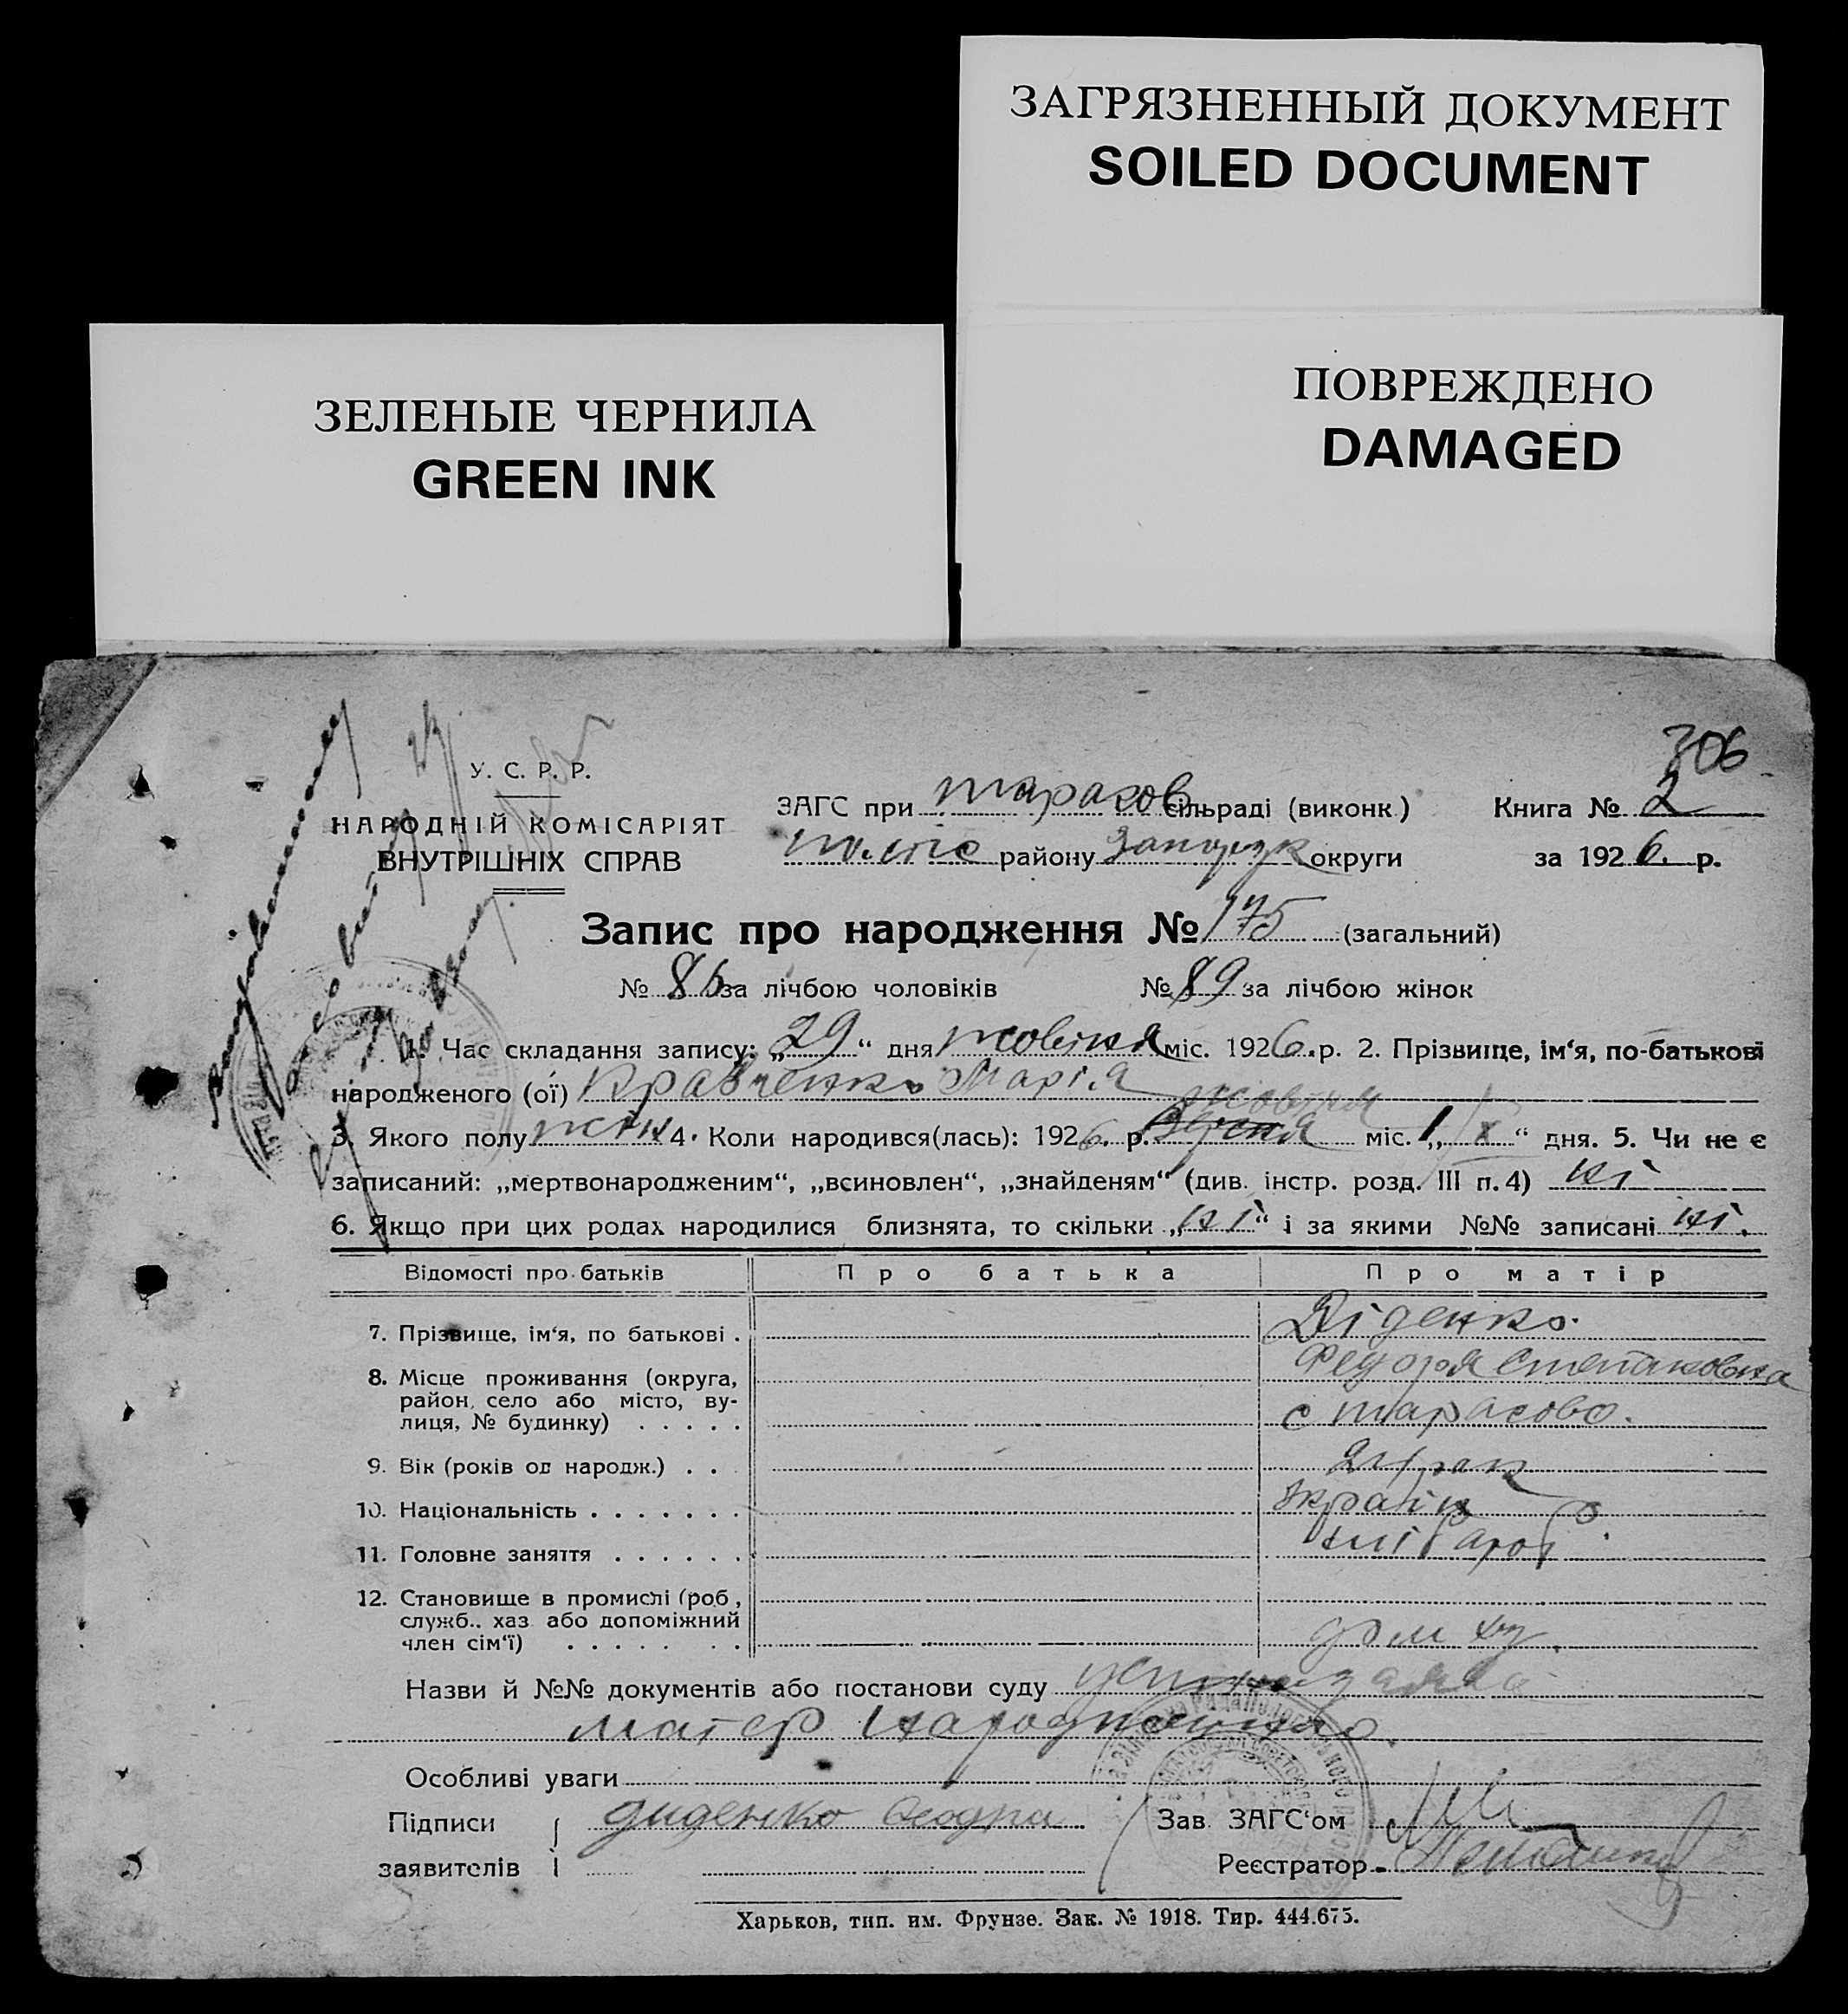 ЗАГРЯЗНЕННЫЙ ДОКУМЕНТ
SOILED DOCUMENT
ЗЕЛЕНЫЕ ЧЕРНИЛА
GREEN INK
ПОВРЕЖДЕНО
DAMAGED
306
У. С. Р. Р.
НАРОДНІЙ КОМІСАРІЯТ
ВНУТРІШНІХ СПРАВ
ЗАГС при Тарасов сільраді (виконк.) Книга № 2
району Запоріж округи за 1926. р.
Запис про народження № 175 (загальний)
№ 86 за лічбою чоловіків № 89 за лічбою жінок
1. Час складання запису: „29“ дня жовтня міс. 1926. р. 2. Прізвище, ім‘я, по-батькові
народженого (ої) Кравченко Марія
жовтня
3. Якого полу жін 4. Коли народився(лась): 1926. р. міс. „1/X“ дня. 5. Чи не є
записаний: „мертвонародженим“, „всиновлен“, „знайденям“ (див. інстр. розд. III п. 4) ні
6. Якщо при цих родах народилися близнята, то скільки „ні“ і за якими №№ записані ні.
Відомості про батьків Про батька Про матір
7. Прізвище, ім‘я, по батькові . Діденко.
Федора Степановна
8. Місце проживання (округа,
район, село або місто, ву-
лиця, № будинку) . . . . . с Тарасово.
9. Вік (років од народж.) . .
10. Національність . . . . . . . україн
11. Головне заняття . . . . . . хлібароб.
12. Становище в промислі (роб.,
служб., хаз. або допоміжний
член сім‘ї) . . . . . . . дом
Назви й №№ документів або постанови суду
матер
Особливі уваги
Підписи диденко Феодра Зав. ЗАГС‘ом
заявителів Реєстратор
Харьков, тип. им. Фрунзе. Зак. № 1918. Тир. 444.675.